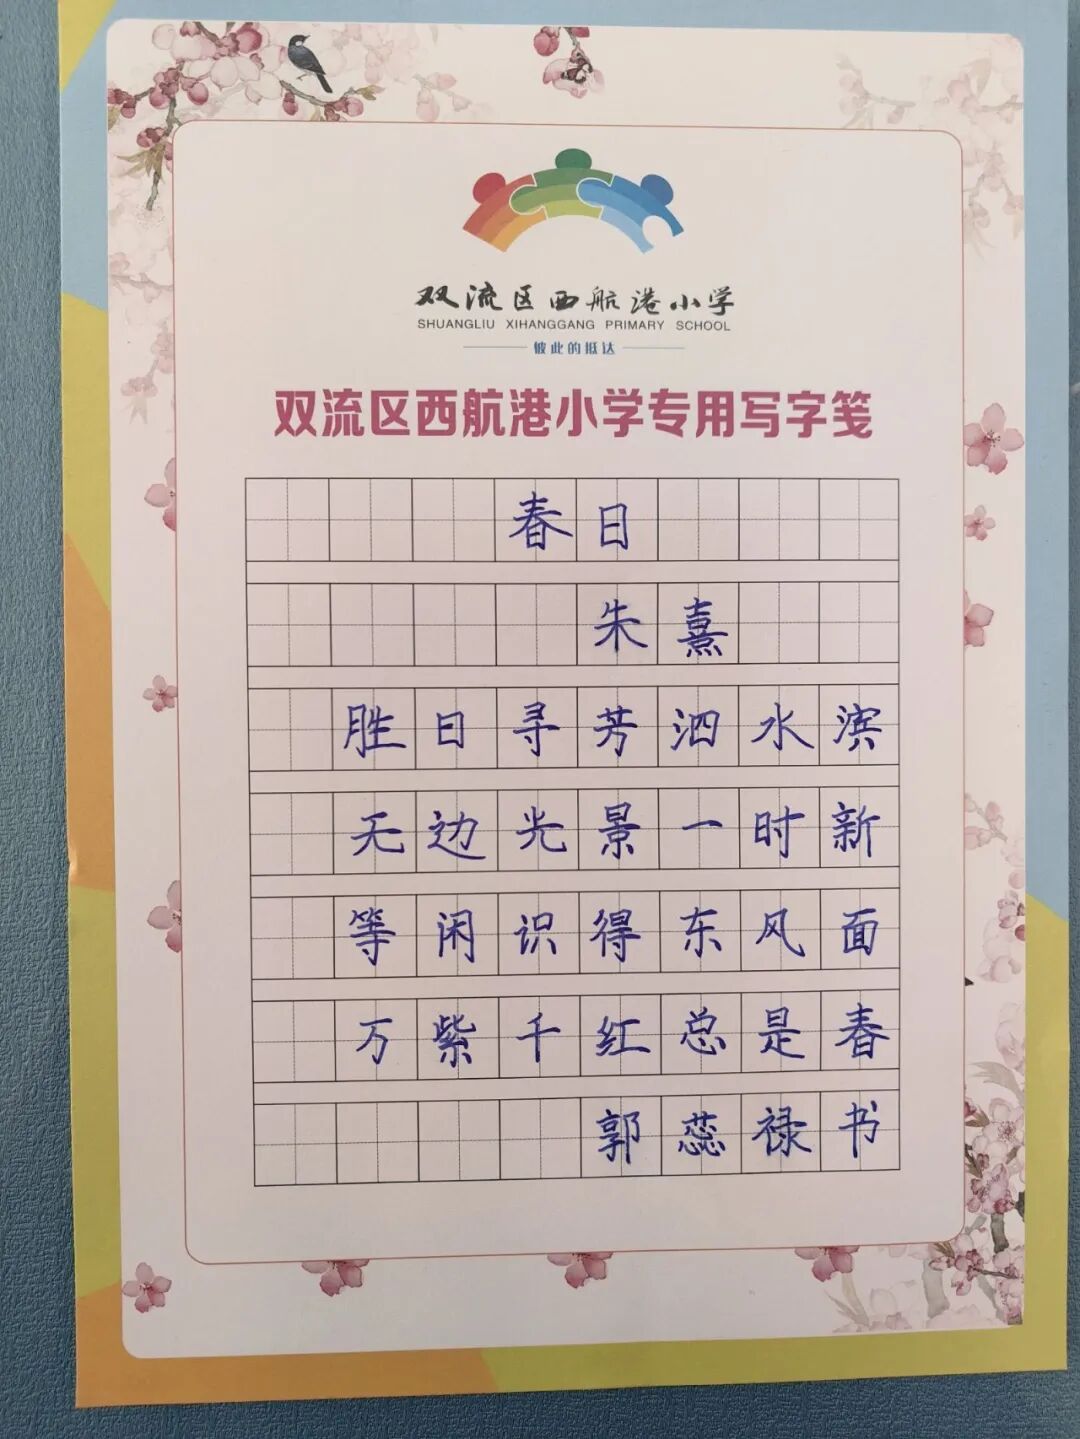 双流区西航港小学
SHUANGLIU XIHANGGANG PRIMARY SCHOOL
彼此的抵达
双流区西航港小学专用写字笺
春日
朱熹
胜日寻芳泗水滨
无边光景一时新
等闲识得东风面
万紫千红总是春
郭蕊禄书